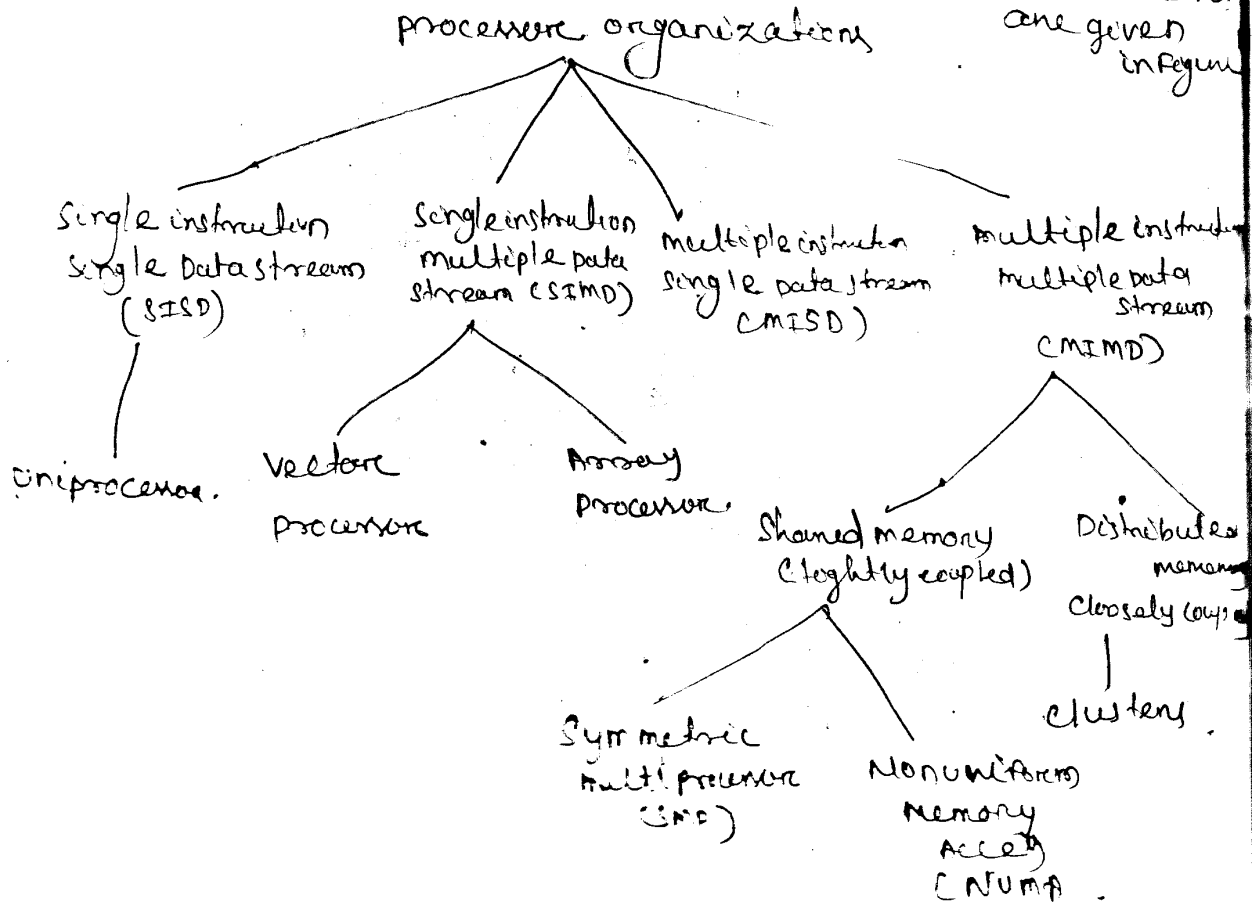 processore organizations
are given
in Figure
Single instruction
Single Data stream
(SISD)
Single instruction
multiple Data
stream (SIMD)
multiple instruction
Single Data stream
(MISD)
multiple instruction
multiple Data
stream
(MIMD)
Uniprocessor.
Vectore
processore
Array
processor.
Shared memory
(tightly coupled)
Distributed
memory
Clusters.
Symmetric
multiprocessore
(SMP)
Nonuniform
Memory
Access
(NUMA